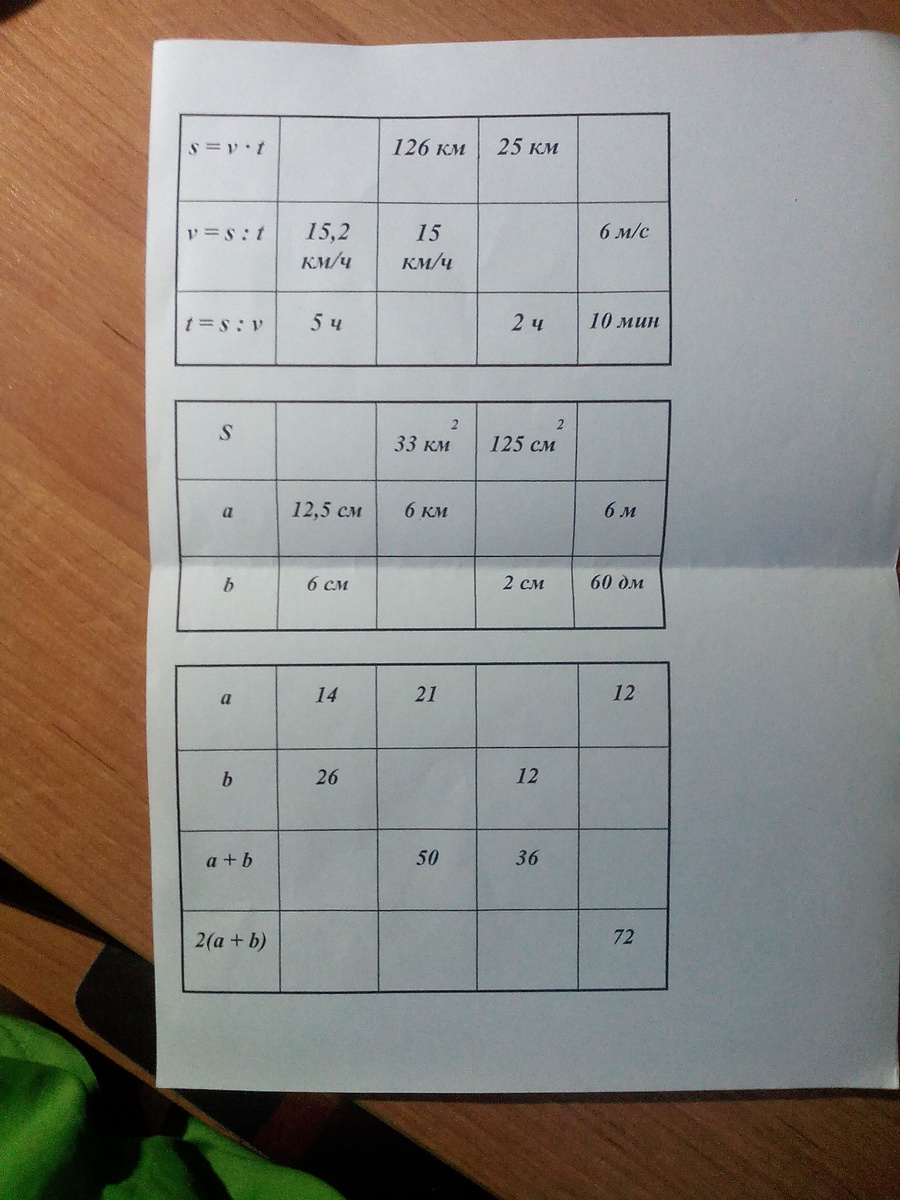 s = v · t 126 км 25 км
v = s : t 15,2 км/ч 15 км/ч 6 м/с
t = s : v 5 ч 2 ч 10 мин
S 33 км² 125 см²
a 12,5 см 6 км 6 м
b 6 см 2 см 60 дм
a 14 21 12
b 26 12
a + b 50 36
2(a + b) 72